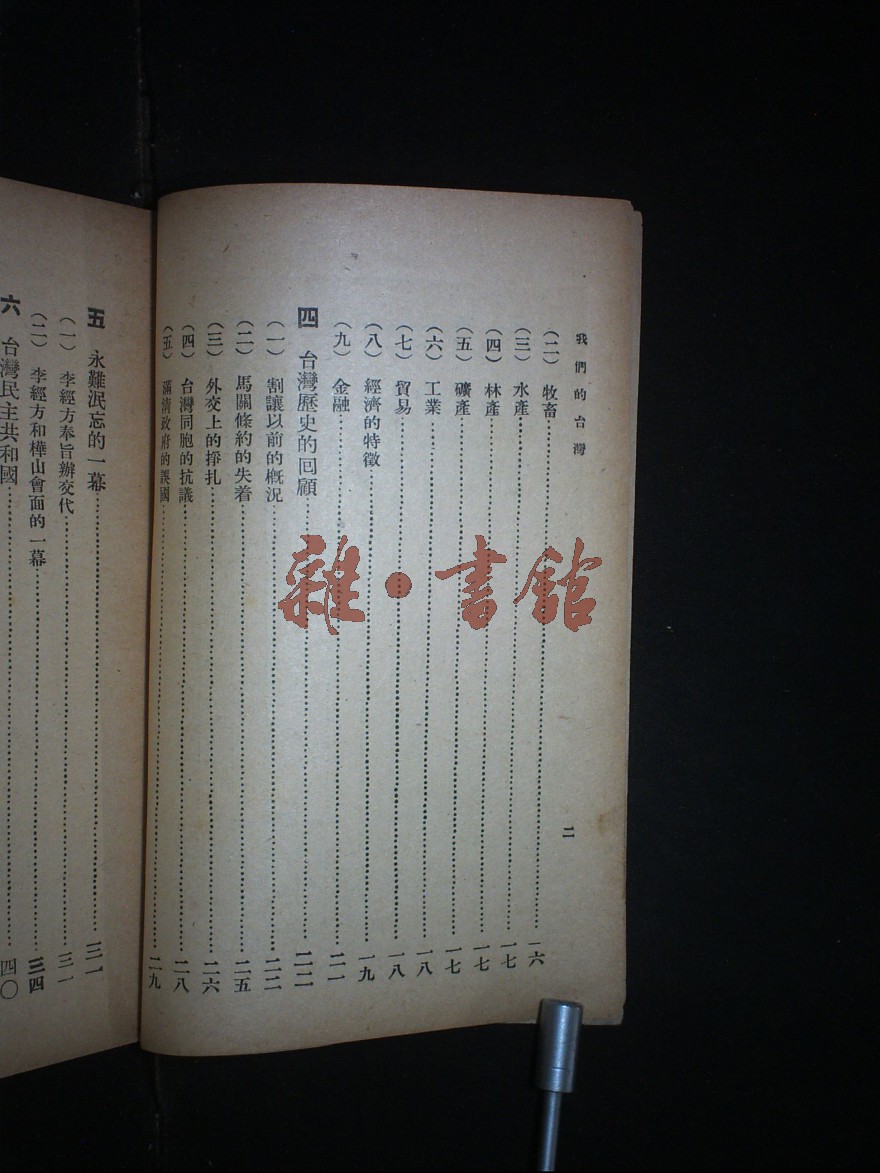 我們的台灣
二
(二) 牧畜……一六
(三) 水產……一七
(四) 林產……一七
(五) 礦產……一七
(六) 工業……一八
(七) 貿易……一八
(八) 經濟的特徵……一九
(九) 金融……二一
四 台灣歷史的回顧……二二
(一) 割讓以前的概況……二二
(二) 馬關條約的失着……二五
(三) 外交上的掙扎……二六
(四) 台灣同胞的抗議……二八
(五) 滿清政府的誤國……二九
五 永難泯忘的一幕……三一
(一) 李經方奉旨辦交代……三一
(二) 李經方和樺山會面的一幕……三四
六 台灣民主共和國……四〇
雜·書館